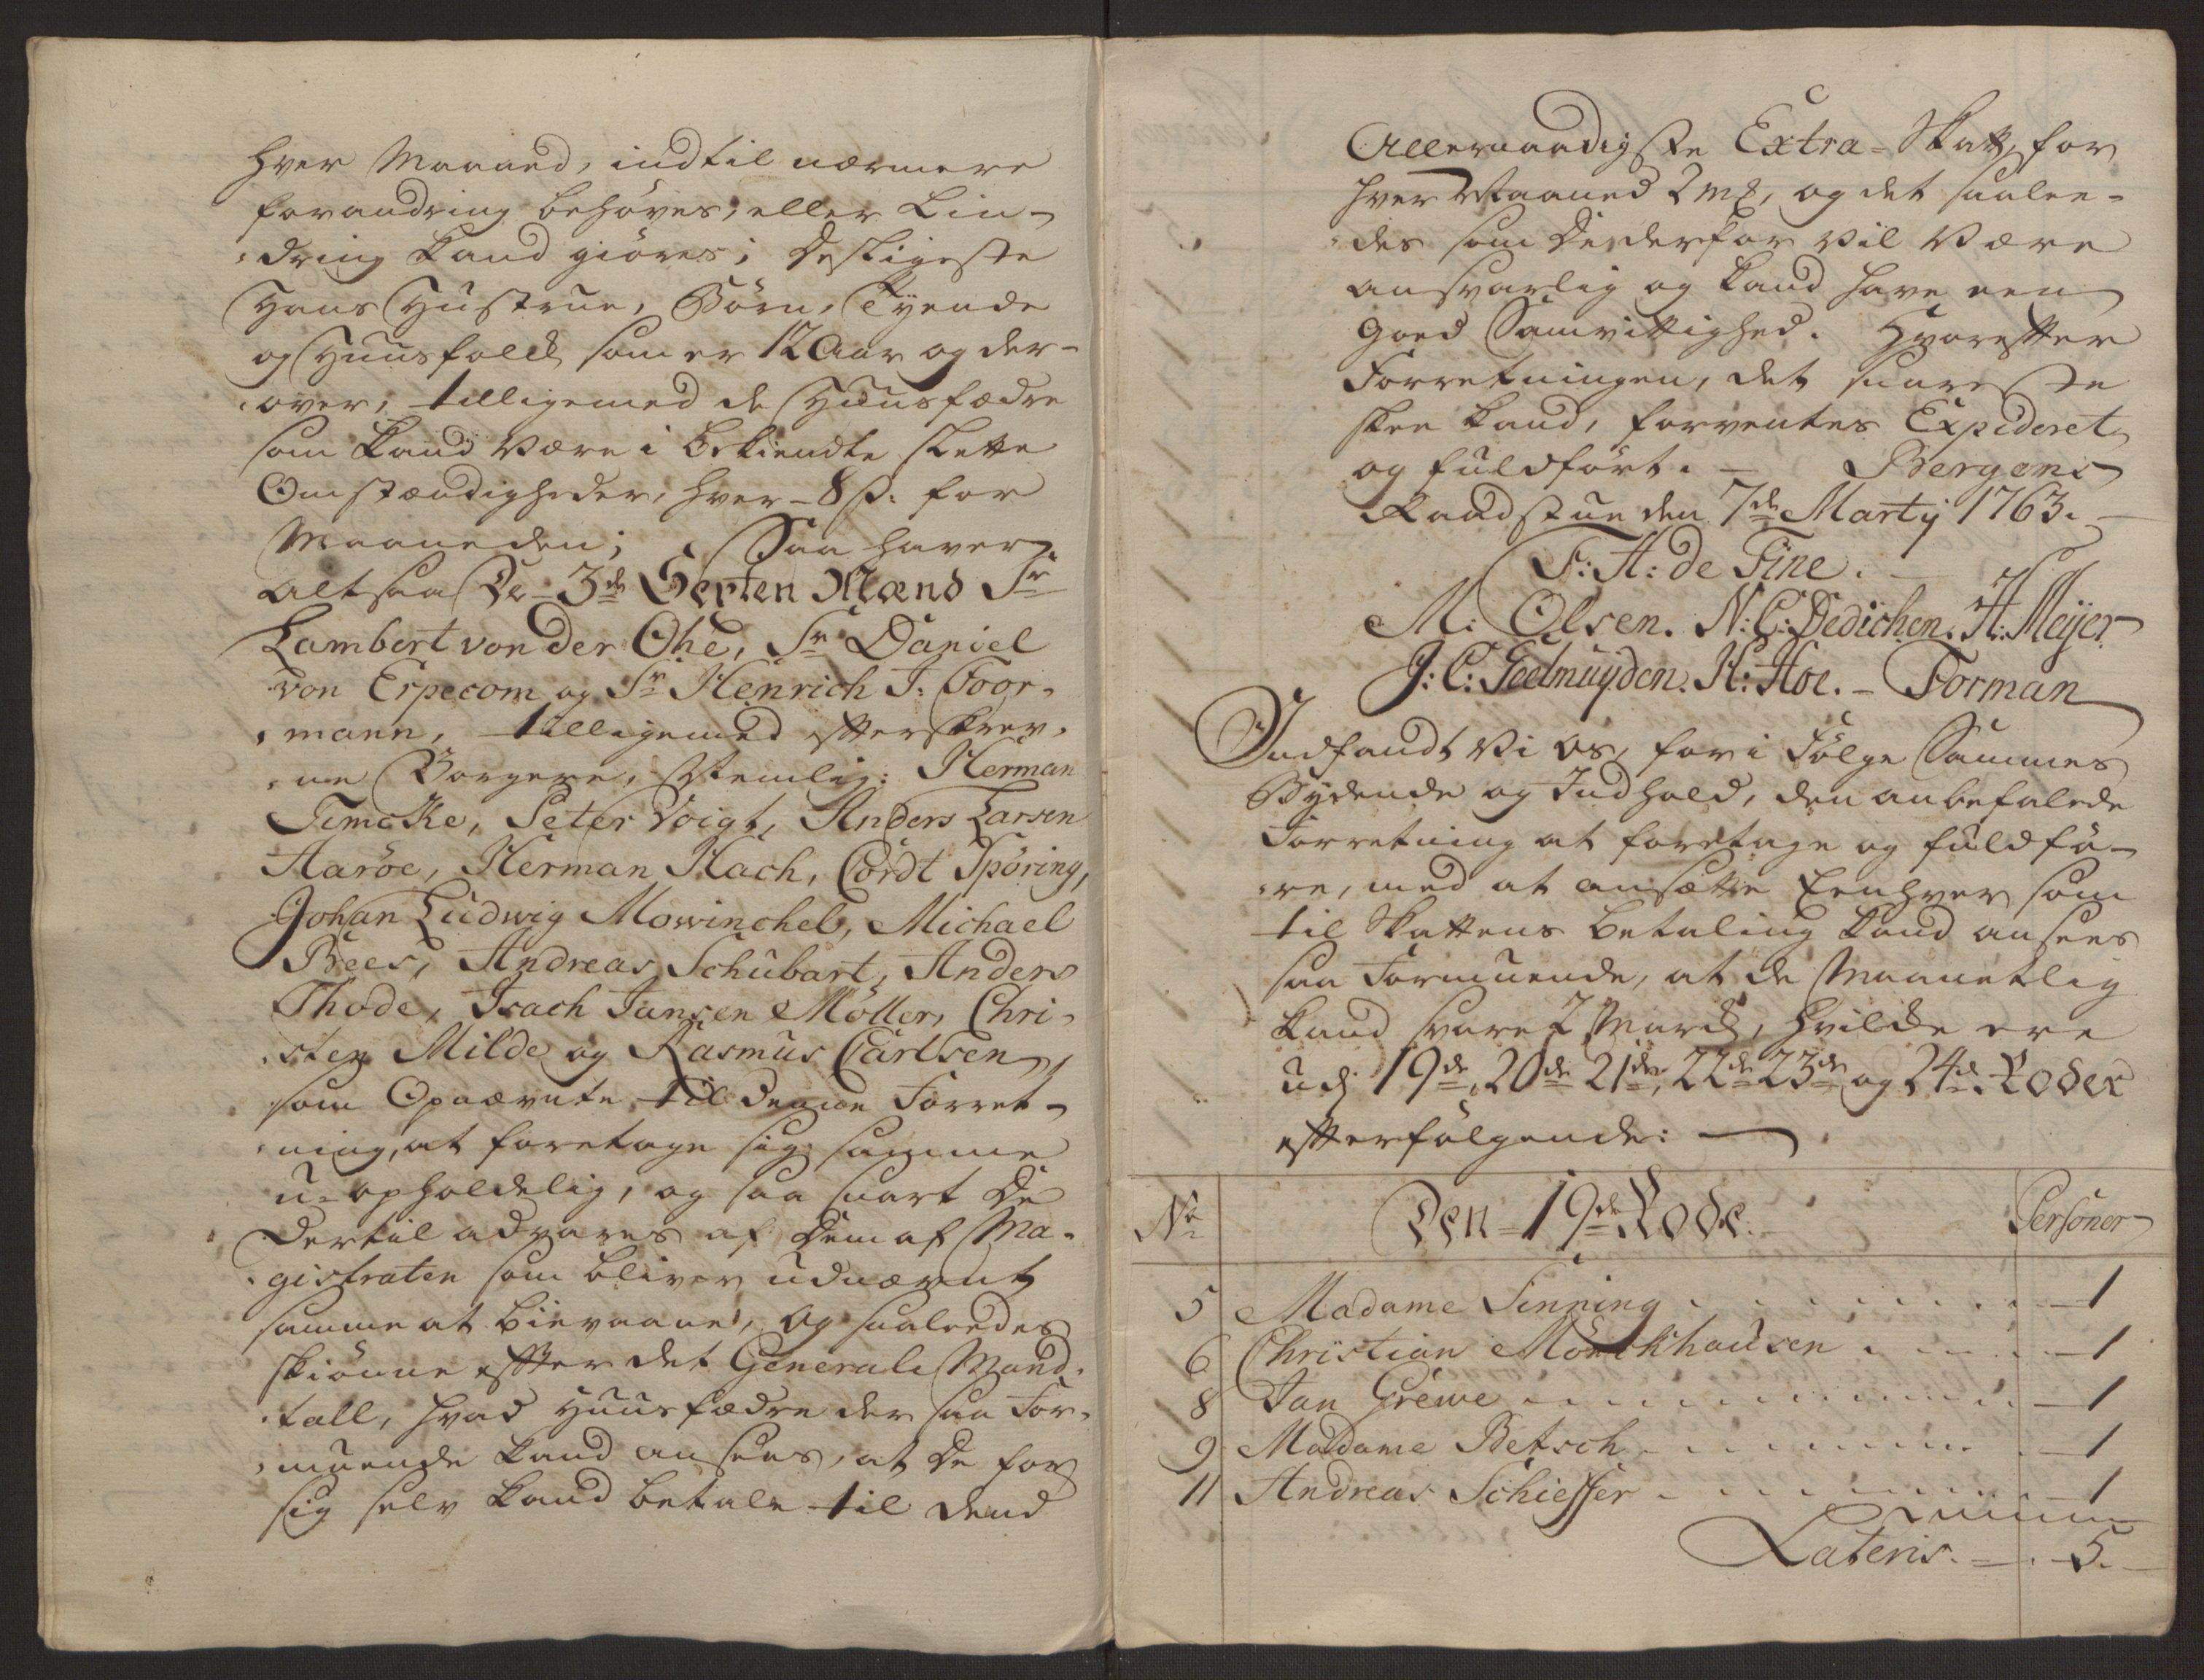 hver Maaned, indtil nærmere
forandring behøves, eller Lin-
dring kand giöres; desligeste
Hans Hustrue, Börn, Tyende
og Huusfolck som er 12 Aar og der-
over, tilligemed de Huusfædre
som kand være i bekiendte slette
Omstændigheder, hver - 8 ß. for
Maaneden; Saa haver
altsaa De - 3de Sexten Mænd Sr
Lambert von der Ohe, Sr Daniel
von Erpecom og Sr Henrich J: Foor-
mann, tilligemed efterskrev-
ne Borgere, Nemlig: Herman
Timcke, Peter Voigt, Anders Larsen
Aaröe, Herman Hach, Cordt Spöring,
Johan Ludwig Mowinchel, Michael
Bees, Andreas Schubart, Anders
Thode, Isach Jansen Möller, Chri-
sten Milde og Rasmus Carlsen,
som Opnævnte til denne Forret-
ning, at foretage sig samme
u-opholdelig, og saa snart De
dertil advares af Dem af Ma-
gistraten som bliver udnævnt
samme at bievaane, og saaledes
skiönne efter det Generale Mand-
tall, hvad Huusfædre der saa For-
muende kand ansees, at De for
sig selv kand betale til dend
Allernaadigste Extra-Skatt, for
hver Maaned 2 mk, og det saalee-
des som De derfor vil være
ansvarlig og kand have een
goed Samvittighed. Hvorefter
Forretningen, det snareste
skee kand, forventes Expideret
og fuldfört. - Bergens
Raadstue den 7de Martij 1763.
F: H: de Fine.
M. Olsen. N: C: Dedichen. H: Meijer
J: C: Geelmuyden. H: Hoe. - Forman
Indfandt Vi os, for i Fölge Sammes
Bydende og Indhold, den anbefalede
Forretning at foretage og fuldfö-
re, med at ansætte Eenhver som
til Skattens betaling kand ansees
saa Formuende, at de Maanetlig
kand svare 2 Marck, hvilcke ere
udj 19de, 20de 21de, 22de 23de og 24de Roder
efterfölgende:
No Den - 19de Rode. Personer
5 Madame Sinning - 1
6 Christian Mönckhausen - 1
8 Jan Grewe - 1
9 Madame Betsch - 1
11 Andreas Schieffer - 1
Lateris. - 5.